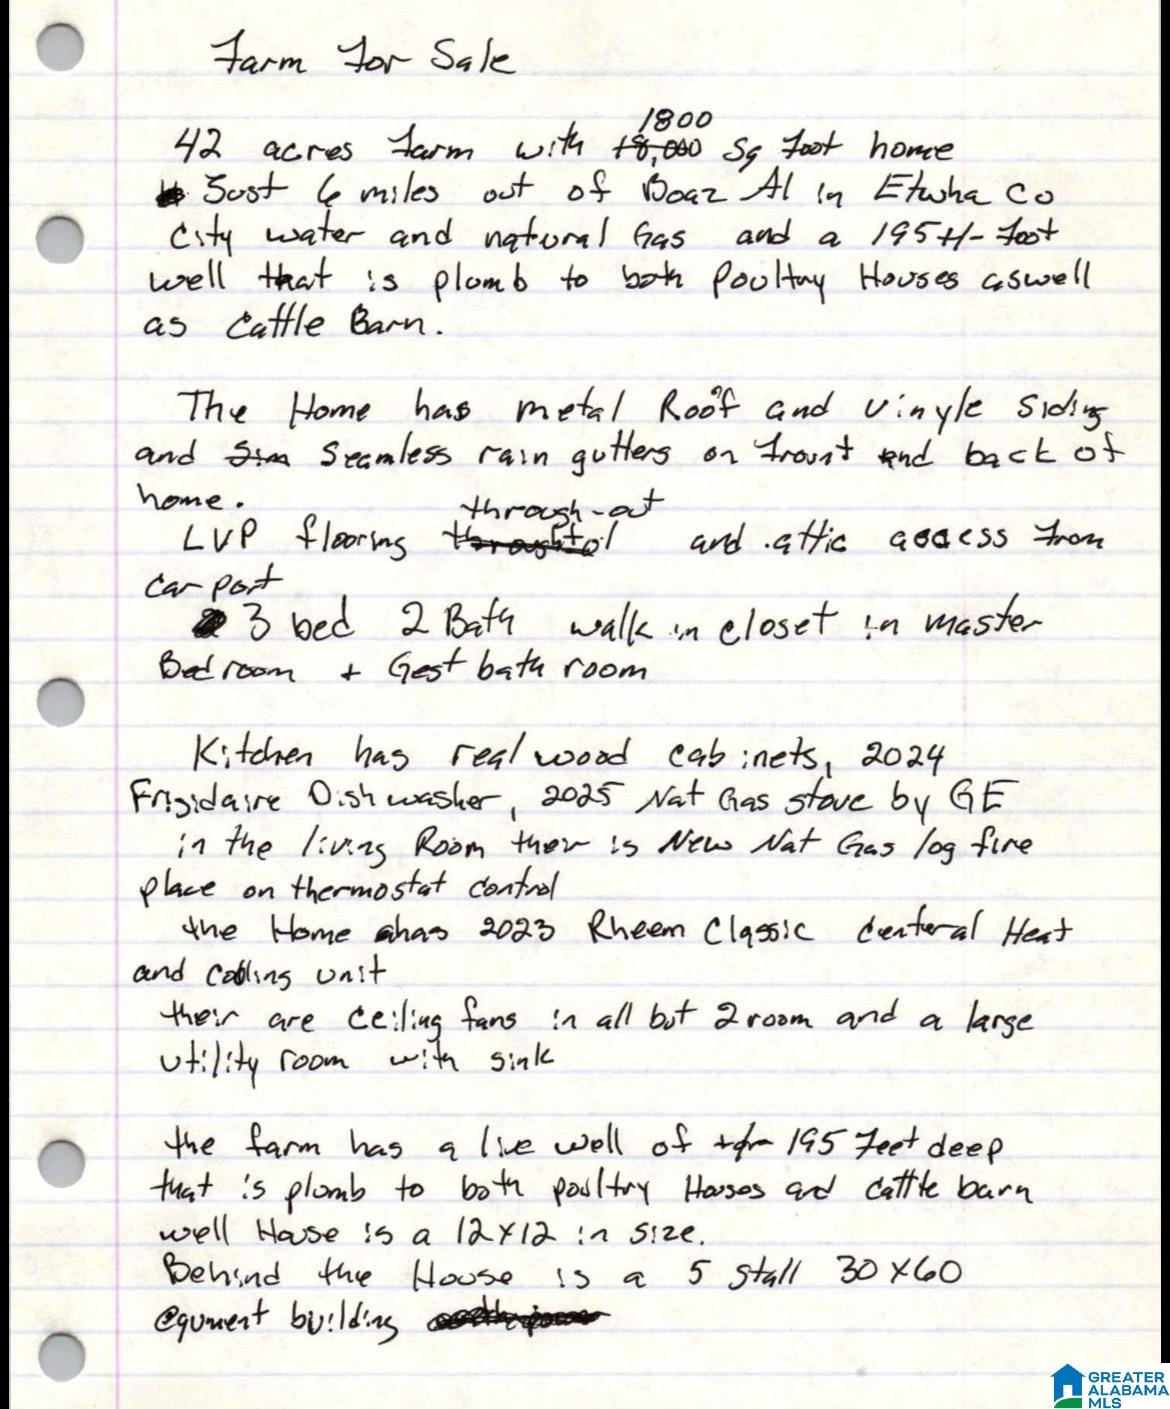 Farm For Sale
1800
42 acres Farm with 18,000 Sq Foot home
Just 6 miles out of Boaz Al in Etwha Co
City water and natural Gas and a 195 +/- Foot
well that is plomb to both Poultry Houses aswell
as Cattle Barn.
The Home has metal Roof and Vinyle Siding
and Sim Seamless rain gutters on Front and back of
home.
through-out
LVP flooring and attic access From
car port
3 bed 2 Bath walk in closet in master
Bedroom + Gest bath room
Kitchen has real wood cabinets, 2024
Frigidaire Dishwasher, 2025 Nat Gas stove by GE
in the living Room ther is New Nat Gas log fire
place on thermostat control
the Home has 2023 Rheem Classic Centeral Heat
and Cooling unit
their are Ceiling fans in all but 2 room and a large
utility room with sink
the farm has a live well of +or- 195 Feet deep
that is plomb to both poultry Houses and Cattle barn
well House is a 12x12 in size.
Behind the House is a 5 stall 30x60
equment building
GREATER
ALABAMA
MLS